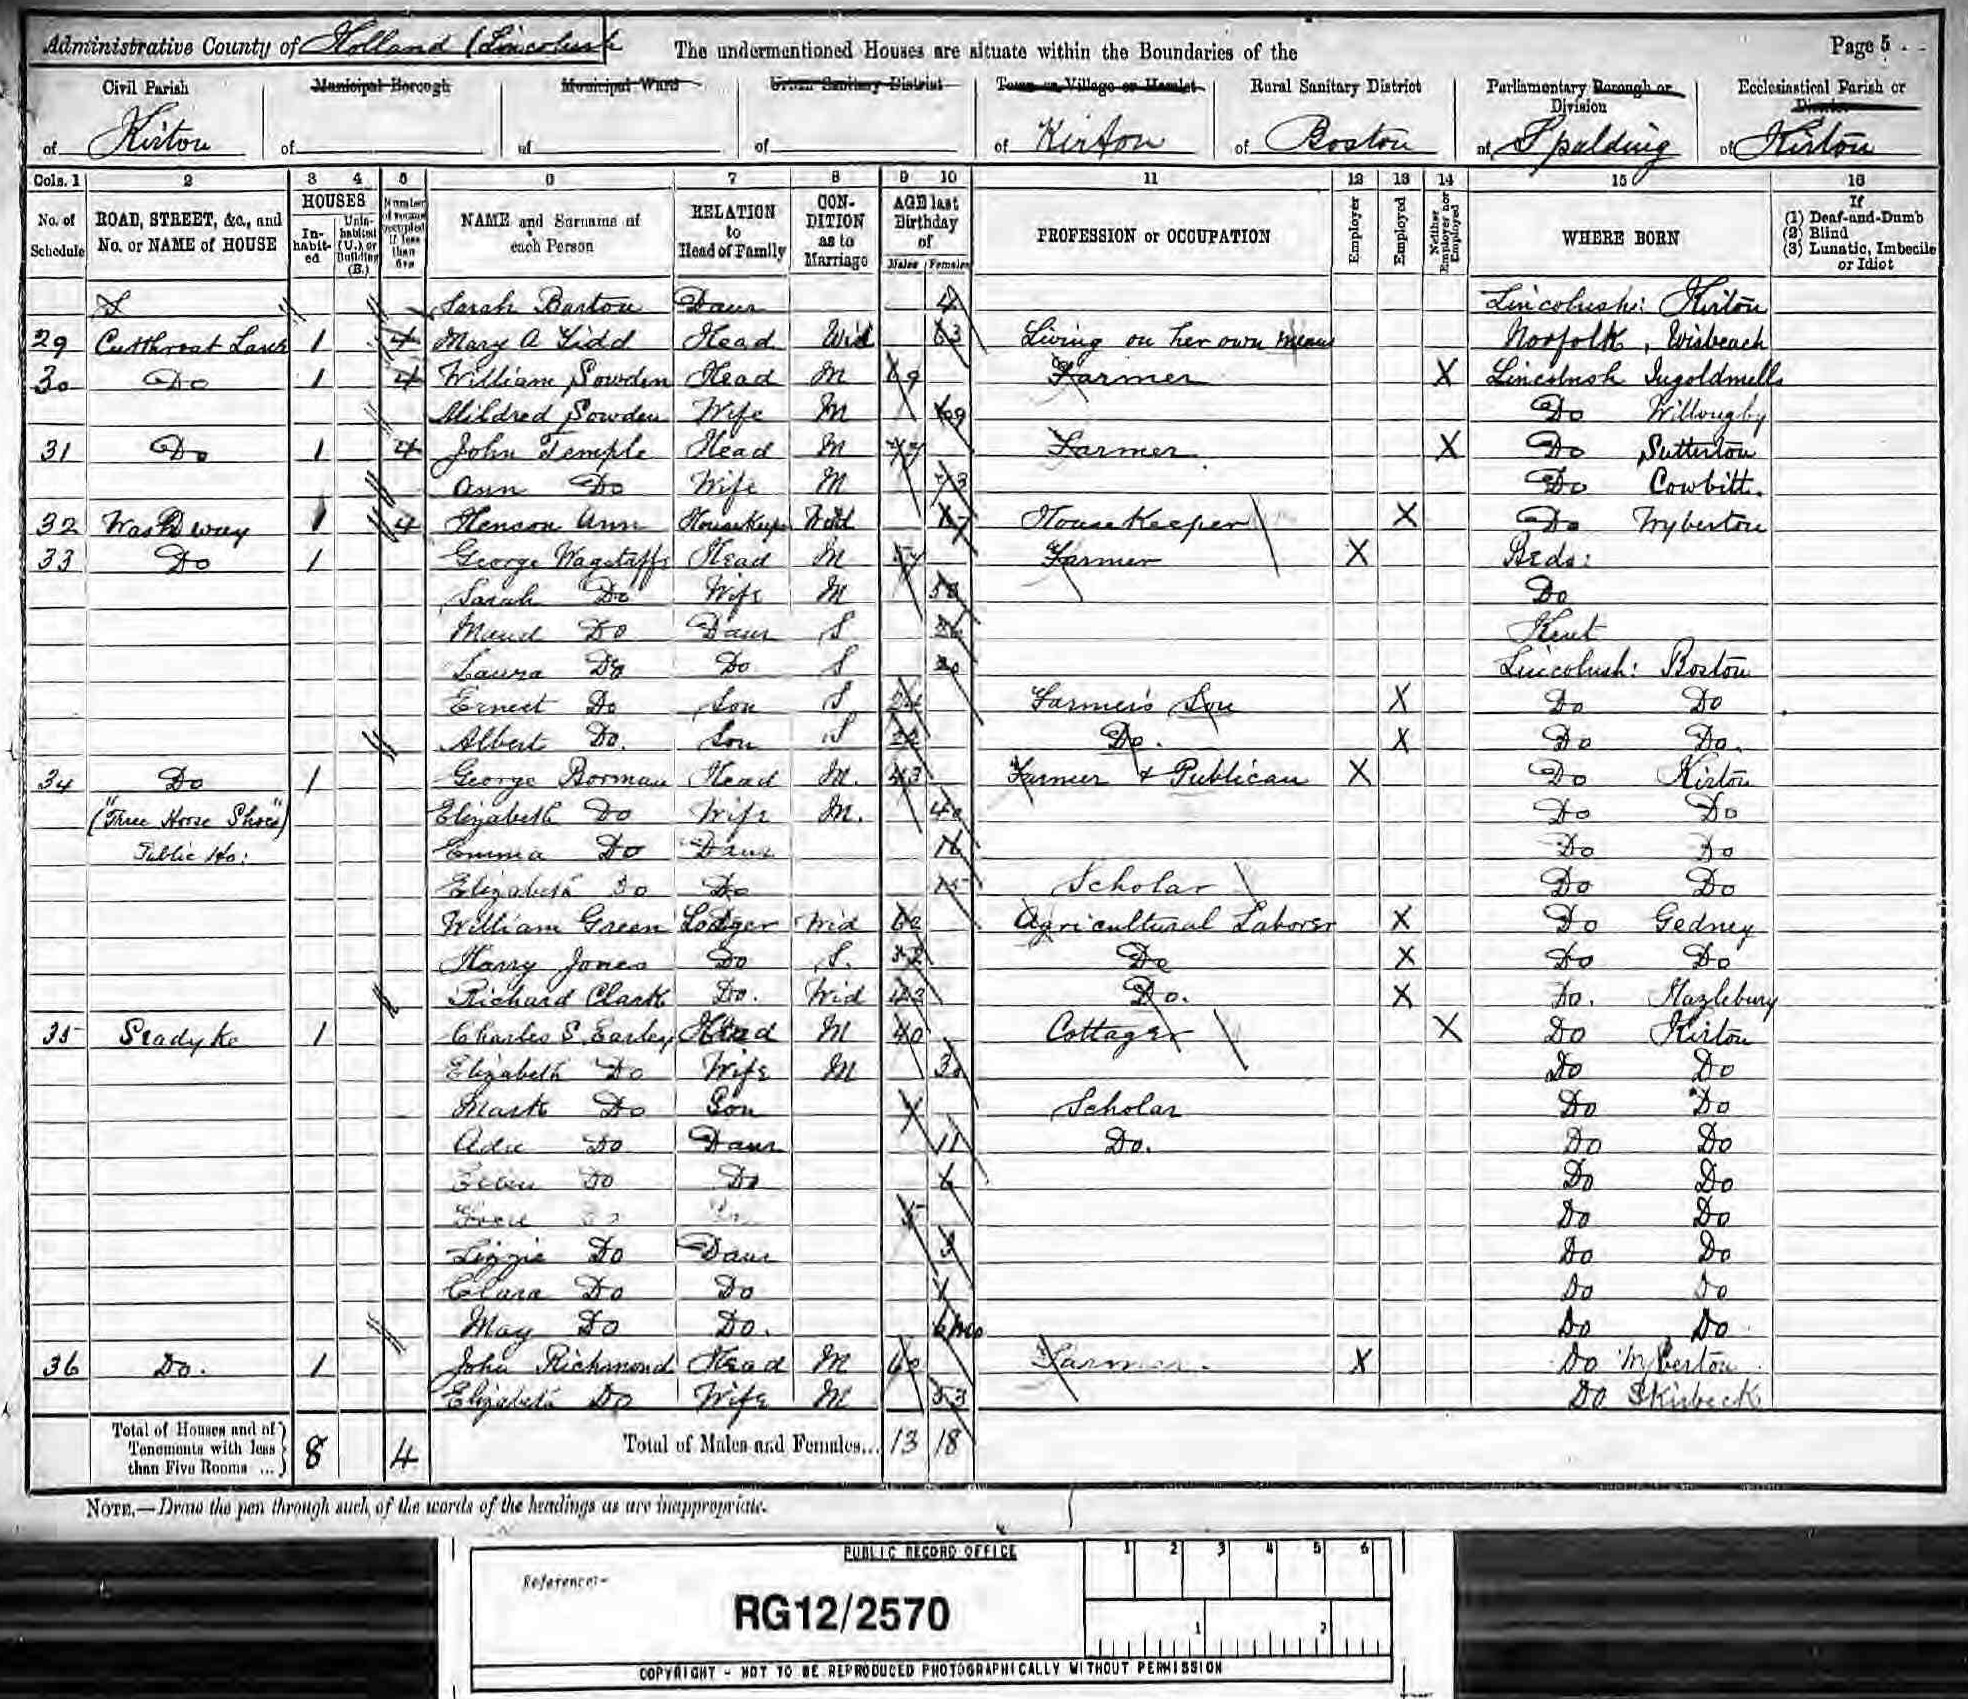 Administrative County of Holland (Lincolnsh The undermentioned Houses are situate within the Boundaries of the Page 5
Civil Parish Municipal Borough Municipal Ward Urban Sanitary District Town or Village or Hamlet Rural Sanitary District Parliamentary Borough or Division Ecclesiastical Parish or District
of Kirton of of of of Kirton of Boston of Spalding of Kirton
Cols. 1 2 3 4 5 6 7 8 9 10 11 12 13 14 15 16
No. of Schedule ROAD, STREET, &c., and No. or NAME of HOUSE HOUSES Inhabited Uninhabited (U.) or Building (B.) Number of rooms occupied if less than five NAME and Surname of each Person RELATION to Head of Family CONDITION as to Marriage AGE last Birthday of Males Females PROFESSION or OCCUPATION Employer Employed Neither Employer nor Employed WHERE BORN If (1) Deaf-and-Dumb (2) Blind (3) Lunatic, Imbecile or Idiot
Sarah Barton Daur 4 Lincolnsh: Kirton
29 Cutthroat Lane 1 4 Mary A Kidd Head Wid 63 Living on her own means Norfolk, Wisbeach
30 Do 1 4 William Sowden Head M 69 Farmer X Lincolnsh Ingoldmells
Mildred Sowden Wife M 69 Do Willougby
31 Do 1 4 John Temple Head M 77 Farmer X Do Sutterton
Ann Do Wife M 73 Do Cowbitt.
32 Washway 1 4 Henson Ann HouseKeeper Wid 67 House Keeper X Do Wyberton
33 Do 1 George Wagstaffe Head M 57 Farmer X Beds:
Sarah Do Wife M 58 Do
Maud Do Daur S 26 Kent
Laura Do Do S 20 Lincolnsh: Boston
Ernest Do Son S 24 Farmer's Son X Do Do
Albert Do. Son S 22 Do. X Do Do.
34 Do 1 George Borman Head M. 43 Farmer & Publican X Do Kirton
("Three Horse Shoes") Elizabeth Do Wife M. 40 Do Do
Public Ho: Emma Do Daur 16 Do Do
Elizabeth Do Do 15 Scholar Do Do
William Green Lodger Wid 62 Agricultural Laborer X Do Gedney
Harry Jones Do S. 32 Do X Do Do
Richard Clark Do. Wid 43 Do. X Do. Hazlebury
35 Seadyke 1 Charles S. Earley Head M 40 Cottager X Do Kirton
Elizabeth Do Wife M 30 Do Do
Mark Do Son Scholar Do Do
Adie Do Daur 11 Do. Do Do
Do Do 6 Do Do
Do 5 Do Do
Lizzie Do Daur 3 Do Do
Clara Do Do Do Do
May Do Do. 6 Mo Do Do
36 Do. 1 John Richmond Head M 60 Farmer. X Do Wyberton
Elizabeth Do Wife M 53 Do Skirbeck
Total of Houses and of Tenements with less than Five Rooms ... 8 4 Total of Males and Females... 13 18
NOTE.—Draw the pen through such of the words of the headings as are inappropriate.
PUBLIC RECORD OFFICE 1 2 3 4 5 6
Reference:-
RG12/2570
1 2
COPYRIGHT - NOT TO BE REPRODUCED PHOTOGRAPHICALLY WITHOUT PERMISSION